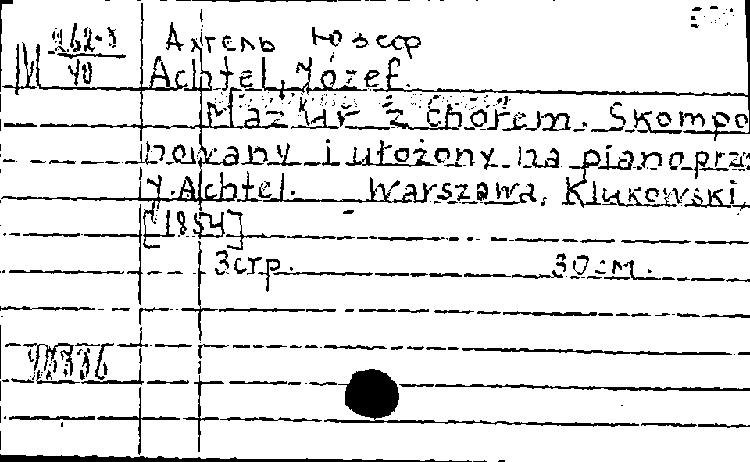 М 262-3
40
Ахтель Юзеф
Achtel, Józef.
Mazur z chórem. Skompo
nowany i ułożony na pianoprzez
J. Achtel. Warszawa, Klukowski,
[1854]
3 стр. 30 см.